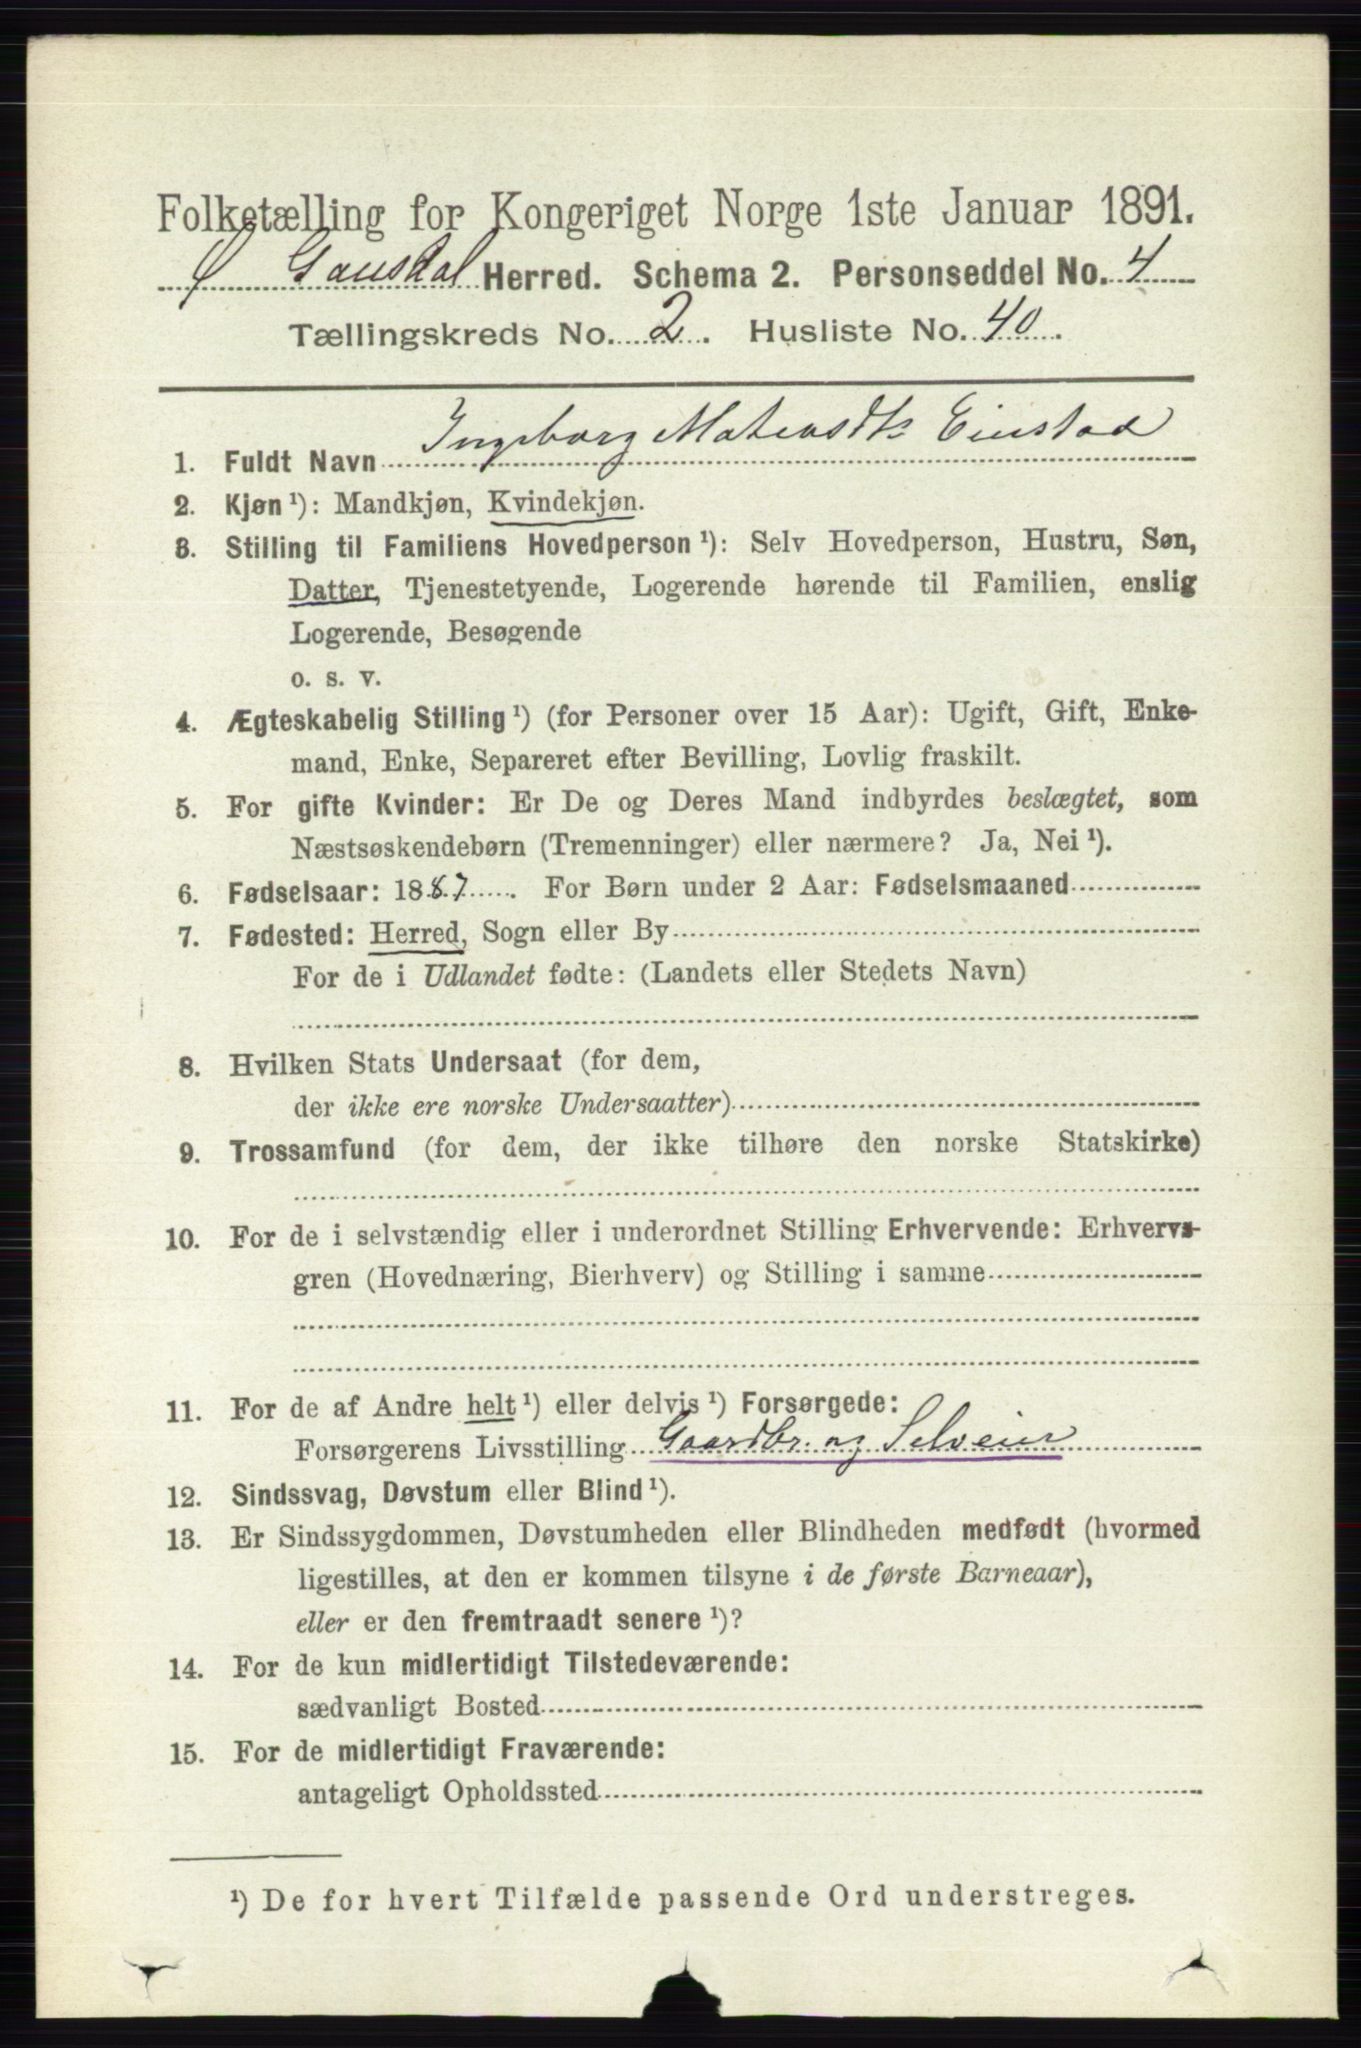 Folketælling for Kongeriget Norge 1ste Januar 1891.
Ø Gausdal Herred. Schema 2. Personseddel No. 4
Tællingskreds No. 2. Husliste No. 40.
1. Fuldt Navn Ingeborg Matensdtr Einstad
2. Kjøn ¹): Mandkjøn, Kvindekjøn.
3. Stilling til Familiens Hovedperson ¹): Selv Hovedperson, Hustru, Søn,
Datter, Tjenestetyende, Logerende hørende til Familien, enslig
Logerende, Besøgende
o. s. v.
4. Ægteskabelig Stilling ¹) (for Personer over 15 Aar): Ugift, Gift, Enke-
mand, Enke, Separeret efter Bevilling, Lovlig fraskilt.
5. For gifte Kvinder: Er De og Deres Mand indbyrdes beslægtet, som
Næstsøskendebørn (Tremenninger) eller nærmere? Ja, Nei ¹).
6. Fødselsaar: 1887. For Børn under 2 Aar: Fødselsmaaned
7. Fødested: Herred, Sogn eller By
For de i Udlandet fødte: (Landets eller Stedets Navn)
8. Hvilken Stats Undersaat (for dem,
der ikke ere norske Undersaatter)
9. Trossamfund (for dem, der ikke tilhøre den norske Statskirke)
10. For de i selvstændig eller i underordnet Stilling Erhvervende: Erhvervs-
gren (Hovednæring, Bierhverv) og Stilling i samme
11. For de af Andre helt ¹) eller delvis ¹) Forsørgede:
Forsørgerens Livsstilling Gaardbr. og Selveier
12. Sindssvag, Døvstum eller Blind ¹).
13. Er Sindssygdommen, Døvstumheden eller Blindheden medfødt (hvormed
ligestilles, at den er kommen tilsyne i de første Barneaar),
eller er den fremtraadt senere ¹)?
14. For de kun midlertidigt Tilstedeværende:
sædvanligt Bosted
15. For de midlertidigt Fraværende:
antageligt Opholdssted
¹) De for hvert Tilfælde passende Ord understreges.